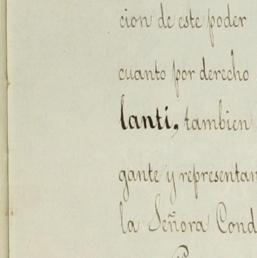 cion de este poder
cuanto por derecho
lanti, tambien
gante y representan
la Señora Cond